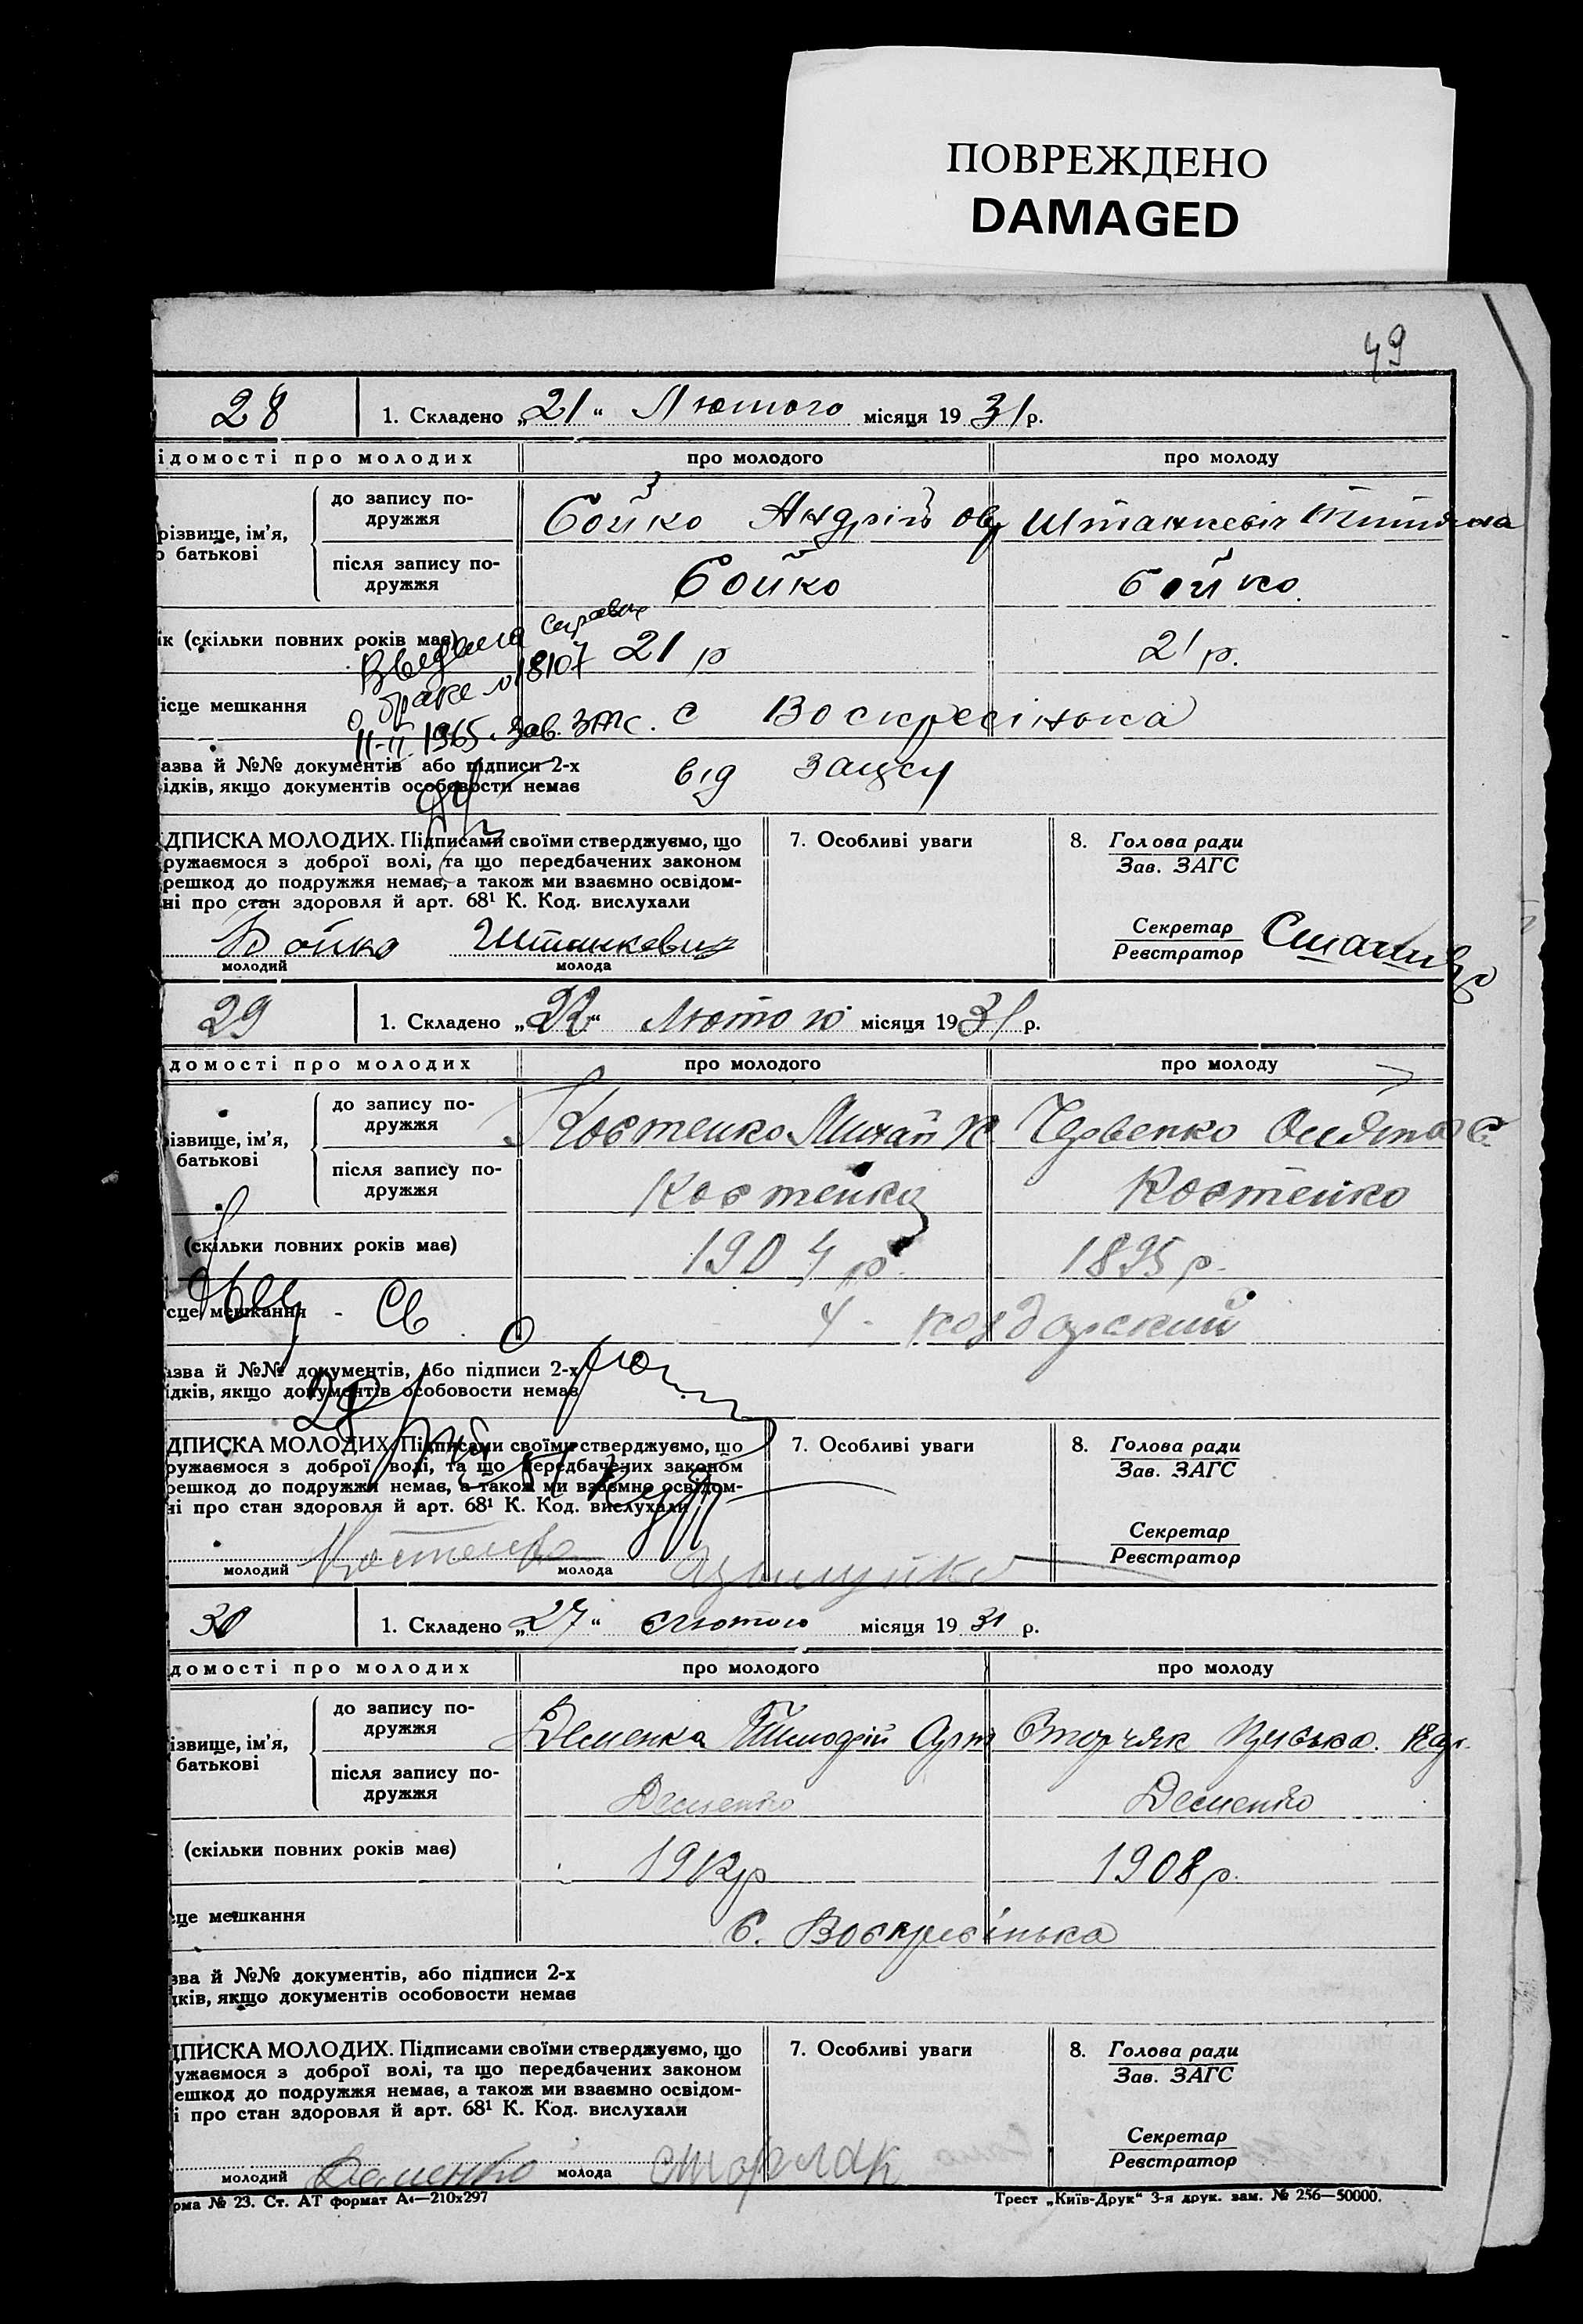 ПОВРЕЖДЕНО
DAMAGED
49
28
1. Складено „21“ Лютого місяця 1931 р.
ідомості про молодих про молодого про молоду
різвище, ім’я,
о батькові
до запису по-
дружжя
Бойко Андрій Штанкевіч
після запису по-
дружжя
Бойко Бойко
ік (скільки повних років має) 21 р 21 р.
справка
о браке № 18107
11-II 1965. Зав. ЗАГС.
ісце мешкання с Воскресінська
азва й №№ документів або підписи 2-х
ідків, якщо документів особовости немає
від загсу
ДПИСКА МОЛОДИХ. Підписами своїми стверджуємо, що
ружаємося з доброї волі, та що передбачених законом
решкод до подружжя немає, а також ми взаємно освідом-
ні про стан здоровля й арт. 68¹ К. Код. вислухали
Бойко Штанкевич
молодий молода
7. Особливі уваги
8. Голова ради
Зав. ЗАГС
Секретар
Реєстратор
29
1. Складено „22“ Лютого місяця 1931 р.
домості про молодих про молодого про молоду
ізвище, ім’я,
батькові
до запису по-
дружжя
Костенко Михайл
після запису по-
дружжя
Костенко Костенко
(скільки повних років має) 1904 р. 1895 р.
сце мешкання
азва й №№ документів, або підписи 2-х
ідків, якщо документів особовости немає
ДПИСКА МОЛОДИХ. Підписами своїми стверджуємо, що
ружаємося з доброї волі, та що передбачених законом
решкод до подружжя немає, а також ми взаємно освідом-
ні про стан здоровля й арт. 68¹ К. Код. вислухали
Костенко
молодий молода
7. Особливі уваги
8. Голова ради
Зав. ЗАГС
Секретар
Реєстратор
30
1. Складено „27“ Лютого місяця 1931 р.
домості про молодих про молодого про молоду
ізвище, ім’я,
батькові
до запису по-
дружжя
Деменка Тимофій Арт
після запису по-
дружжя
Деменко Деменко
(скільки повних років має) 1908 р.
сце мешкання С. Воскресінька
зва й №№ документів, або підписи 2-х
дків, якщо документів особовости немає
ДПИСКА МОЛОДИХ. Підписами своїми стверджуємо, що
ужаємося з доброї волі, та що передбачених законом
ешкод до подружжя немає, а також ми взаємно освідом-
і про стан здоровля й арт. 68¹ К. Код. вислухали
Деменко
молодий молода
7. Особливі уваги
8. Голова ради
Зав. ЗАГС
Секретар
Реєстратор
рма № 23. Ст. АТ формат А₄—210х297
Трест „Київ-Друк“ 3-я друк. зам. № 256—50000.